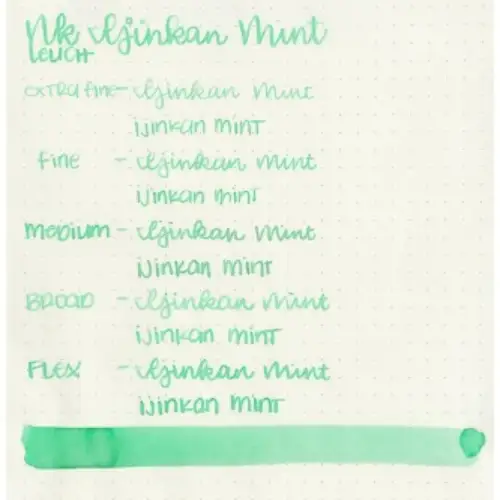 Nk Ijinkan Mint
LEUCHT
EXTRA FINE - Ijinkan Mint
IJINKAN MINT
FINE - Ijinkan Mint
IJINKAN MINT
MEDIUM - Ijinkan Mint
IJINKAN MINT
BROAD - Ijinkan Mint
IJINKAN MINT
FLEX - Ijinkan Mint
IJINKAN MINT